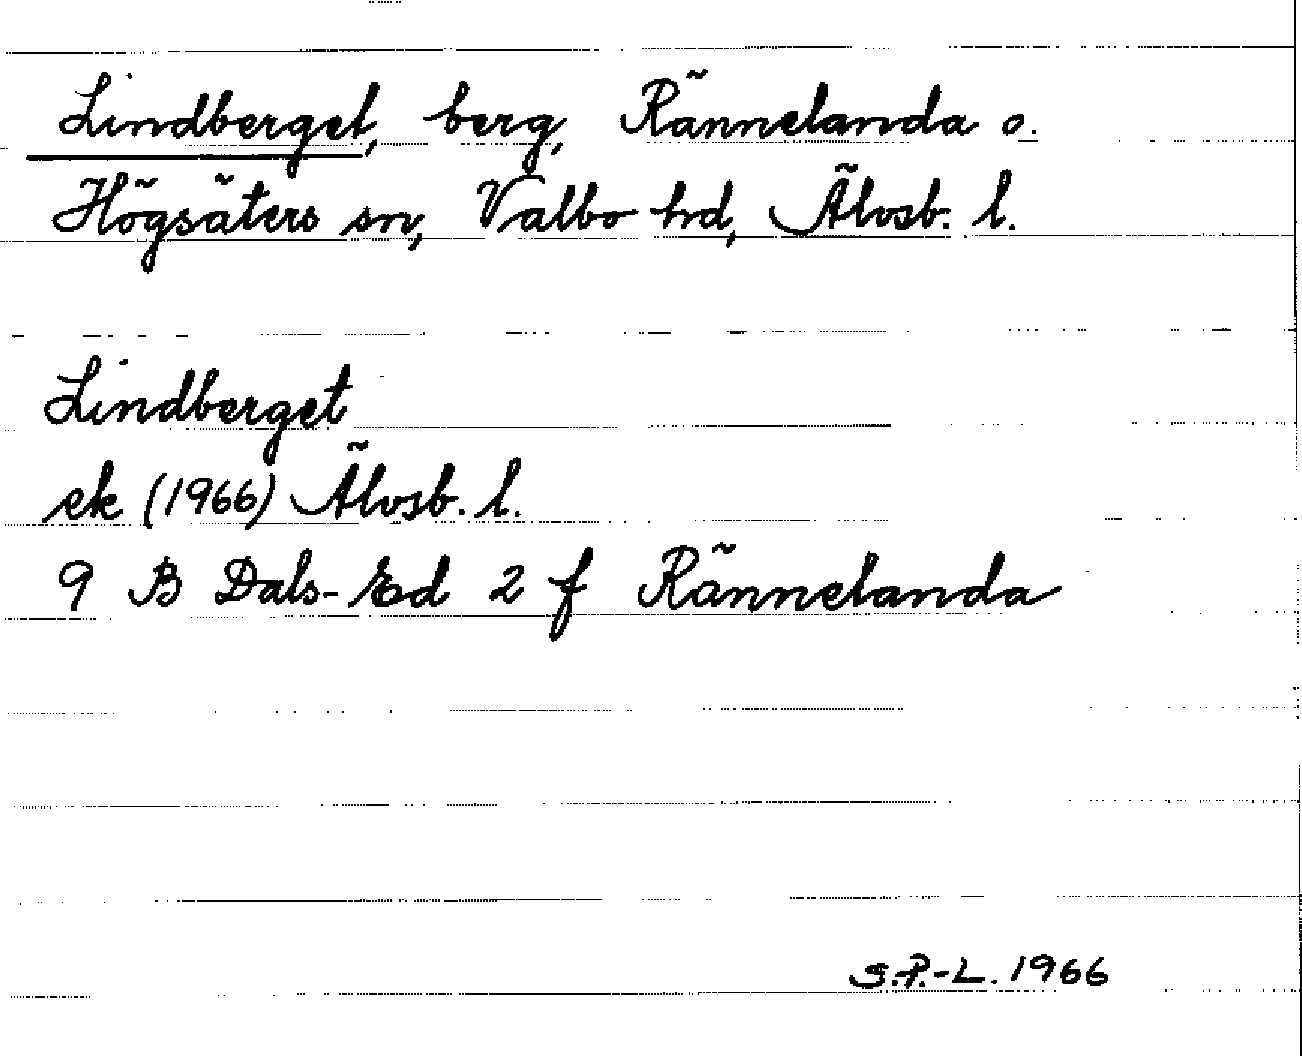 Lindberget, berg, Rännelanda o.
Högsäters sn, Valbo hd, Älvsb. l.
Lindberget
ek (1966) Älvsb. l.
9 B Dals-Ed 2 f Rännelanda
S.P.-L. 1966